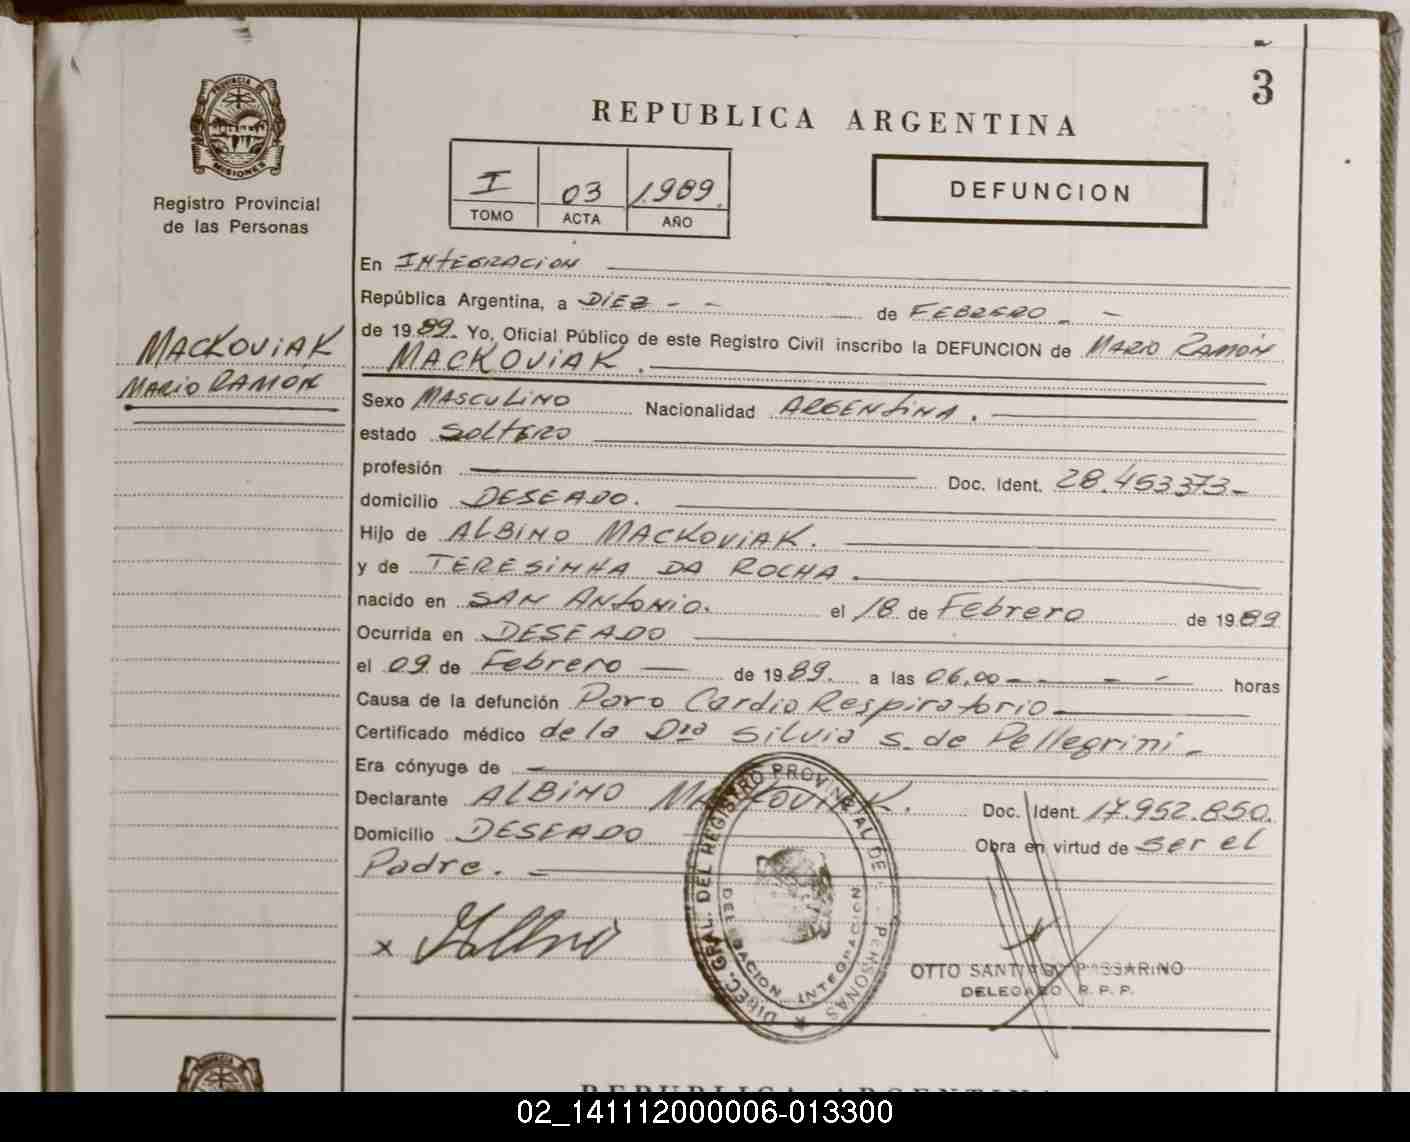 3
PROVINCIA DE
MISIONES
Registro Provincial
de las Personas
REPUBLICA ARGENTINA
I 03 1.989.
TOMO ACTA AÑO
DEFUNCION
En INTEGRACION
República Argentina, a DIEZ - - de FEBRERO - -
MACKOVIAK
MARIO RAMON
de 1989. Yo, Oficial Público de este Registro Civil inscribo la DEFUNCION de MARIO RAMON
MACKOVIAK.
Sexo MASCULINO Nacionalidad ARGENTINA.
estado SOLTERO
profesión Doc. Ident. 28.453373-
domicilio DESEADO.
Hijo de ALBINO MACKOVIAK.
y de TERESINHA DA ROCHA.
nacido en SAN ANTONIO. el 18 de Febrero de 1989
Ocurrida en DESEADO
el 09 de Febrero de 1989. a las 06,00 - - - horas
Causa de la defunción Paro Cardio Respiratorio
Certificado médico de la Dra Silvia S. de Pellegrini -
Era cónyuge de
Declarante ALBINO MACKOVIAK. Doc. Ident. 17.952.850.
Domicilio DESEADO Obra en virtud de ser el
Padre. -
DIREC. GRAL. DEL REGISTRO PROVINCIAL DE PERSONAS
DELEGACION INTEGRACION
x
OTTO SANTIAGO PASSARINO
DELEGADO R. P. P.
REPUBLICA ARGENTINA
02_141112000006-013300